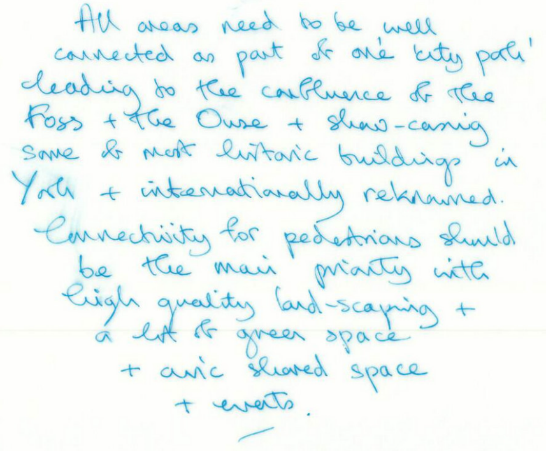 All areas need to be well
connected as part of one 'city park'
leading to the confluence of the
Foss + the Ouse + show-casing
some of most historic buildings in
York + internationally reknowned.
Connectivity for pedestrians should
be the main priority with
high quality land-scaping +
a lot of green space
+ civic shared space
+ events.